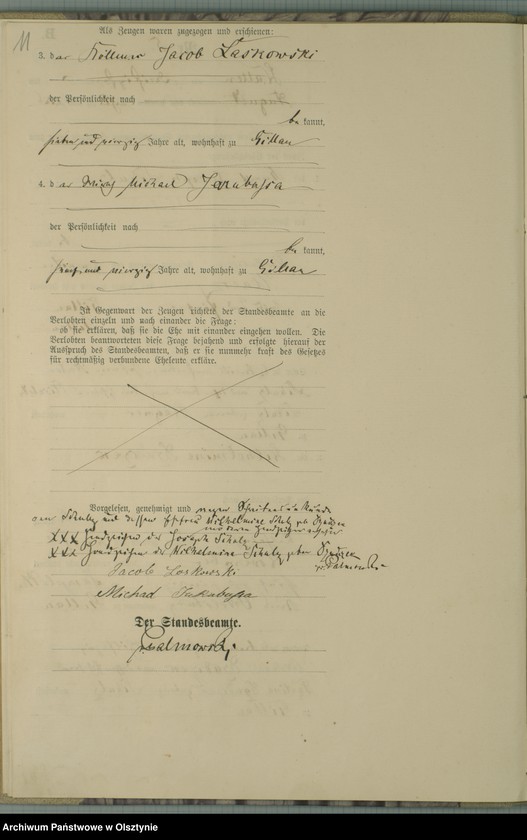 11
Als Zeugen waren zugezogen und erschienen:
3. der Köllmer Jacob Laskowski
der Persönlichkeit nach
be kannt,
sieben und vierzig Jahre alt, wohnhaft zu Gillau
4. d er Michael Jarabusa
der Persönlichkeit nach
be kannt,
fünf und vierzig Jahre alt, wohnhaft zu Gillau
In Gegenwart der Zeugen richtete der Standesbeamte an die
Verlobten einzeln und nach einander die Frage:
ob sie erklären, daß sie die Ehe mit einander eingehen wollen. Die
Verlobten beantworteten diese Frage bejahend und erfolgte hierauf der
Ausspruch des Standesbeamten, daß er sie nunmehr kraft des Gesetzes
für rechtmäßig verbundene Eheleute erkläre.
Vorgelesen, genehmigt und wegen
und dessen Ehefrau Wilhelmine Schulz geb.
XXX Handzeichen des Joseph Schulz
XXX Handzeichen der Wilhelmine Schulz geborne
Jacob Laskowski
Michael Jarabusa
Der Standesbeamte.
Palmowski
Archiwum Państwowe w Olsztynie